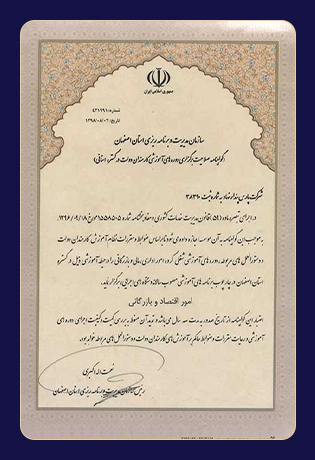 جمهوری اسلامی ایران
شماره: ۴۲۱۹۹۱
تاریخ: ۱۳۹۸/۰۸/۰۶
سازمان مدیریت و برنامه ریزی استان اصفهان
گواهینامه صلاحیت برگزاری دوره های آموزشی کارمندان دولت در گستره (استانی)
شرکت پارس ندار نهاد به شماره ثبت ۳۸۳۱۰
در اجرای تبصره ماده (۵۸) قانون مدیریت خدمات کشوری و مفاد بخشنامه شماره ۱۵۵۸۵۰۵ مورخ ۱۳۹۶/۰۹/۱۸
به موجب این گواهینامه به آن موسسه اجازه داده می شود تا بر اساس ضوابط و مقررات نظام آموزش کارمندان دولت
و دستورالعمل های مربوطه، دوره های آموزشی شغلی گروه امور اداری، مالی و بازرگانی را در حیطه آموزشی ذیل در گستره
استان اصفهان در چارچوب برنامه های آموزشی مصوب سالانه دستگاه های اجرایی برگزار نماید.
امور اقتصاد و بازرگانی
اعتبار این گواهینامه از تاریخ صدور به مدت سه سال می باشد و تمدید آن منوط به بررسی کمیت و کیفیت اجرای دوره های
آموزشی و رعایت مقررات و ضوابط حاکم بر آموزش های کارمندان دولت و دستورالعمل های مربوطه خواهد بود.
نعمت اله اکبری
رئیس سازمان مدیریت و برنامه ریزی استان اصفهان